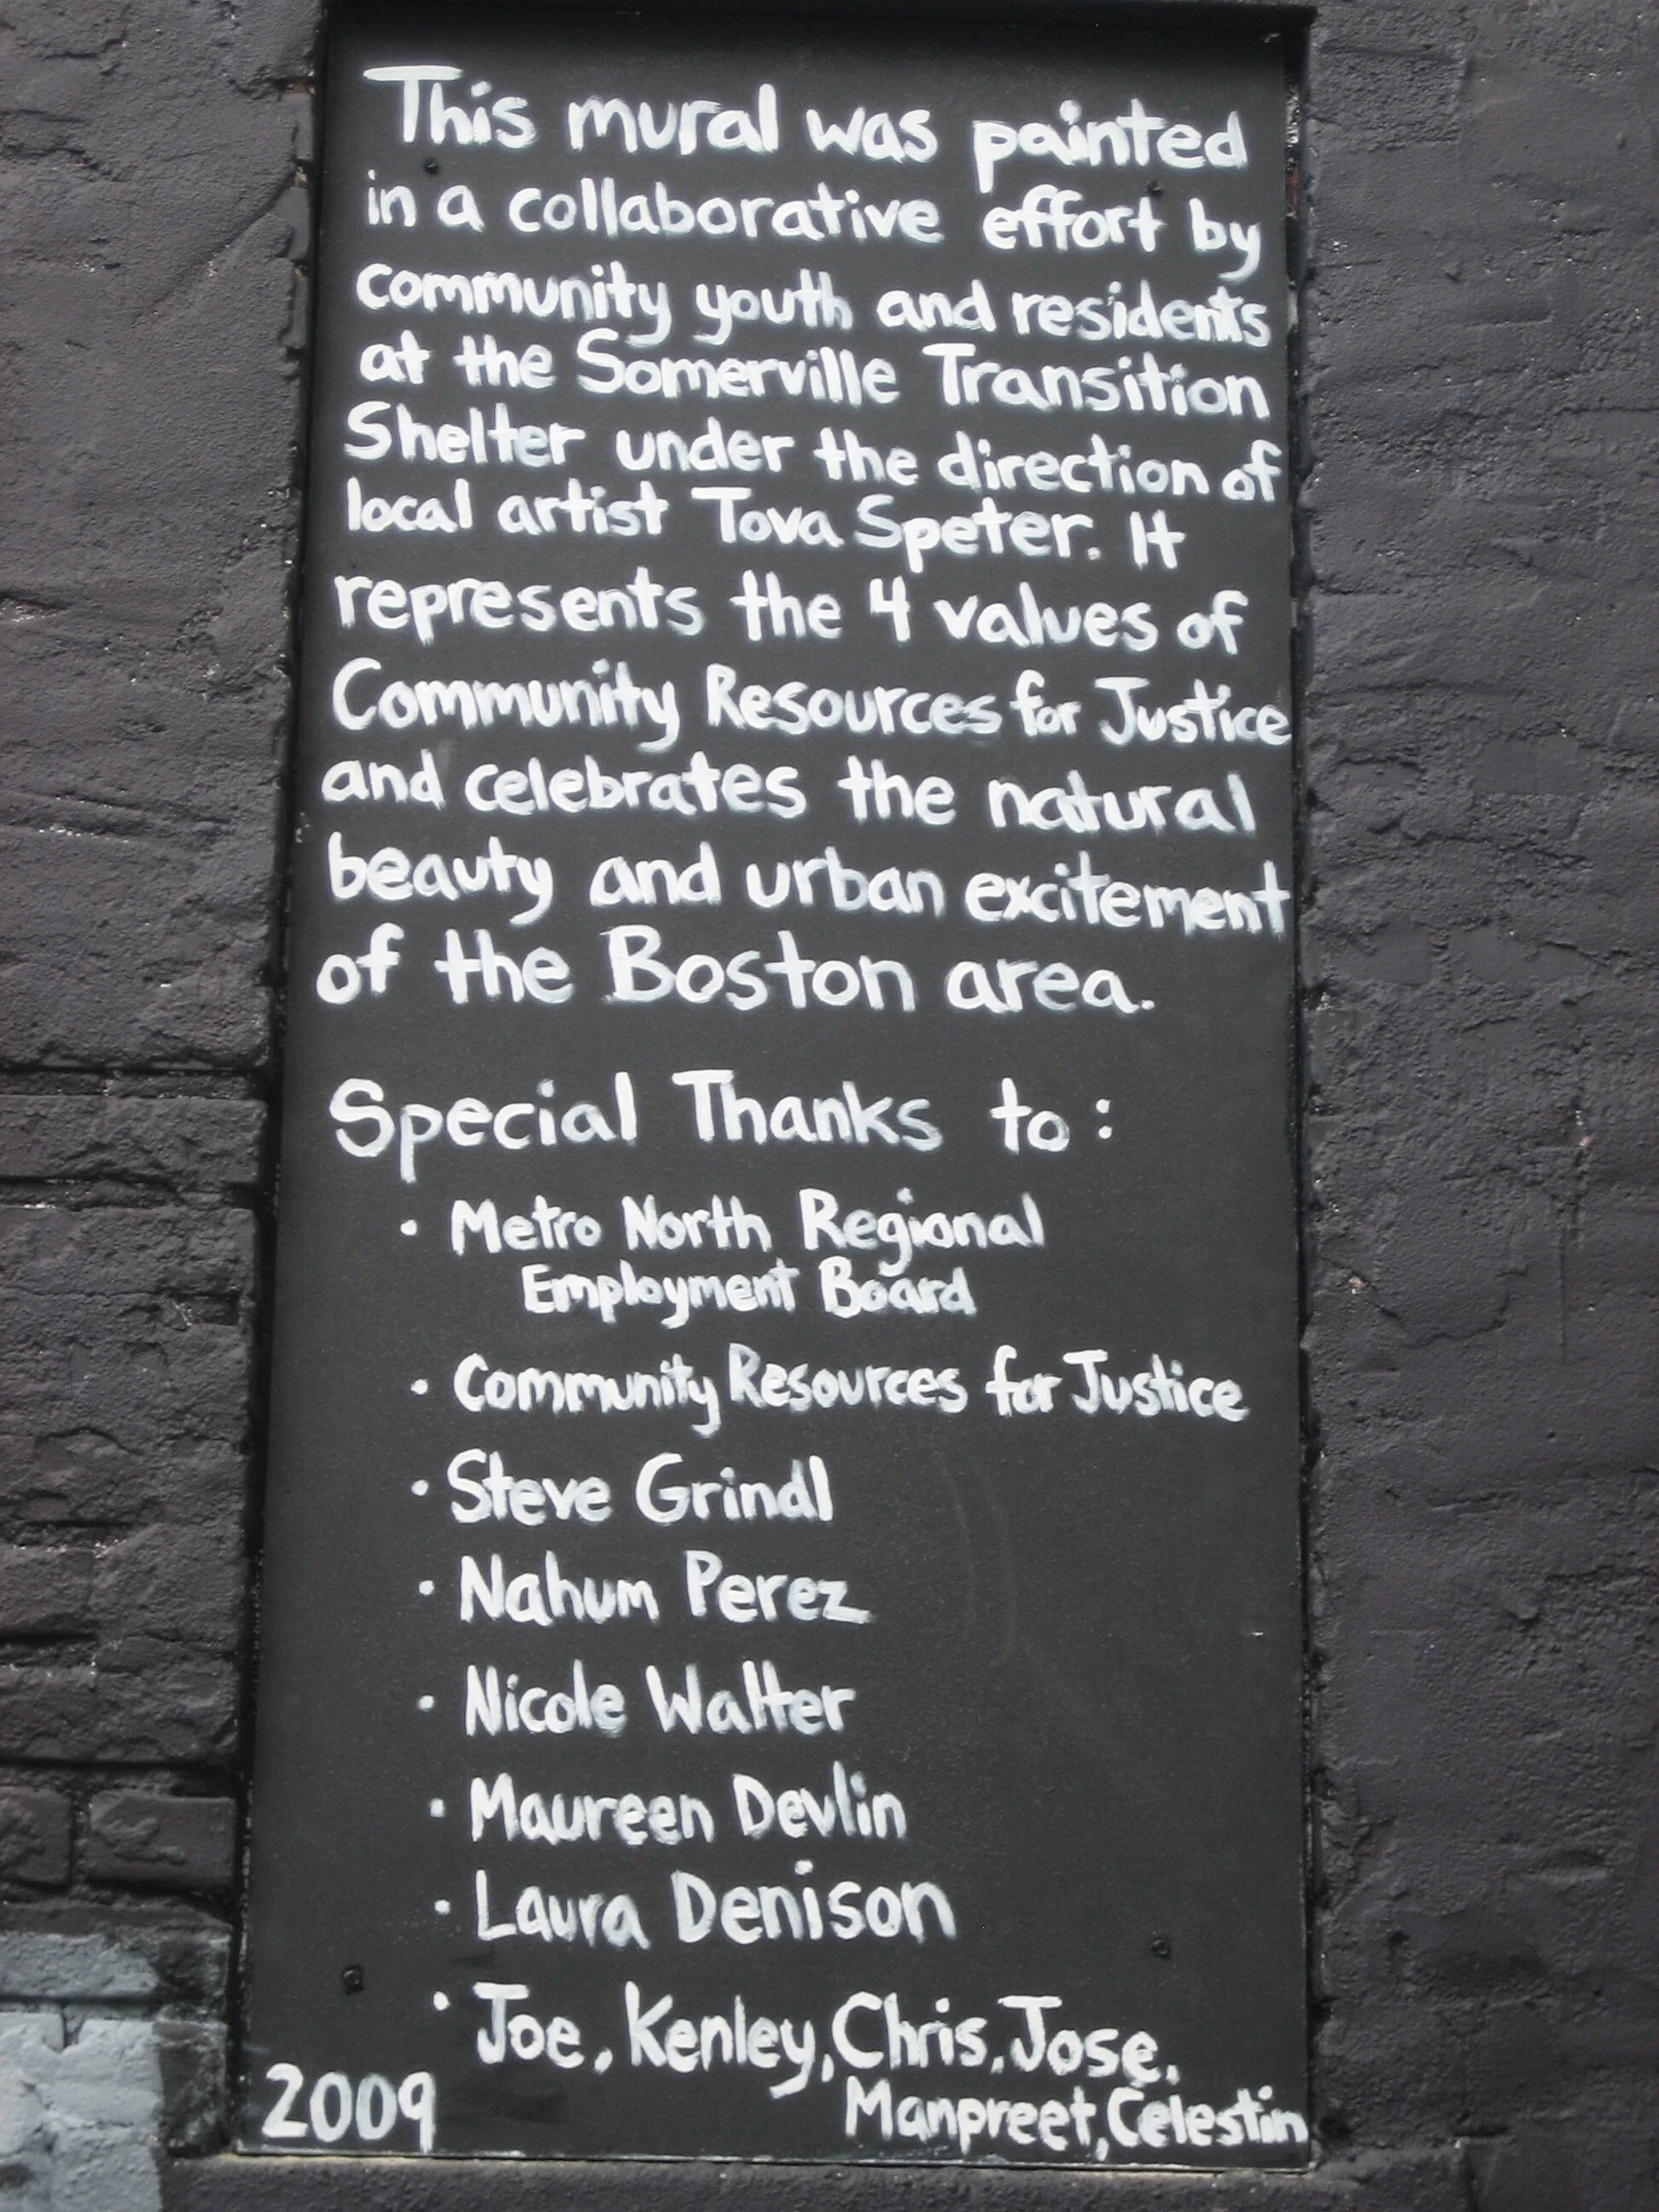 This mural was painted
in a collaborative effort by
community youth and residents
at the Somerville Transition
Shelter under the direction of
local artist Tova Speter. It
represents the 4 values of
Community Resources for Justice
and celebrates the natural
beauty and urban excitement
of the Boston area.
Special Thanks to:
• Metro North Regional
Employment Board
• Community Resources for Justice
• Steve Grindl
• Nahum Perez
• Nicole Walter
• Maureen Devlin
• Laura Denison
• Joe, Kenley, Chris, Jose,
Manpreet, Celestin
2009